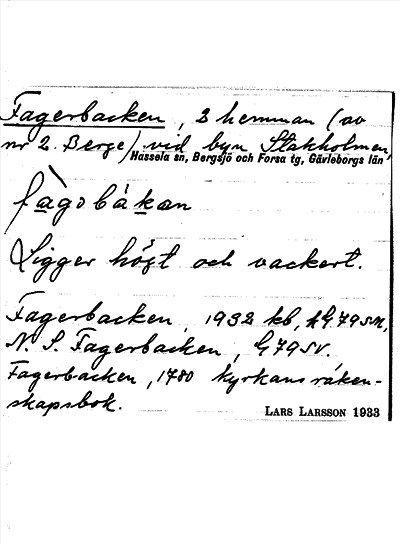 Fagerbacken, 2 hemman (av
nr 2. Berge) vid byn Stakholmen,
Hassela sn, Bergsjö och Forsa tg, Gävleborgs län
fàgobákan
Ligger högt och vackert.
Fagerbacken, 1932 kb, hG 79 SM,
N. S. Fagerbacken, G 79 SV.
Fagerbacken, 1780 kyrkans räken-
skapsbok.
LARS LARSSON 1933